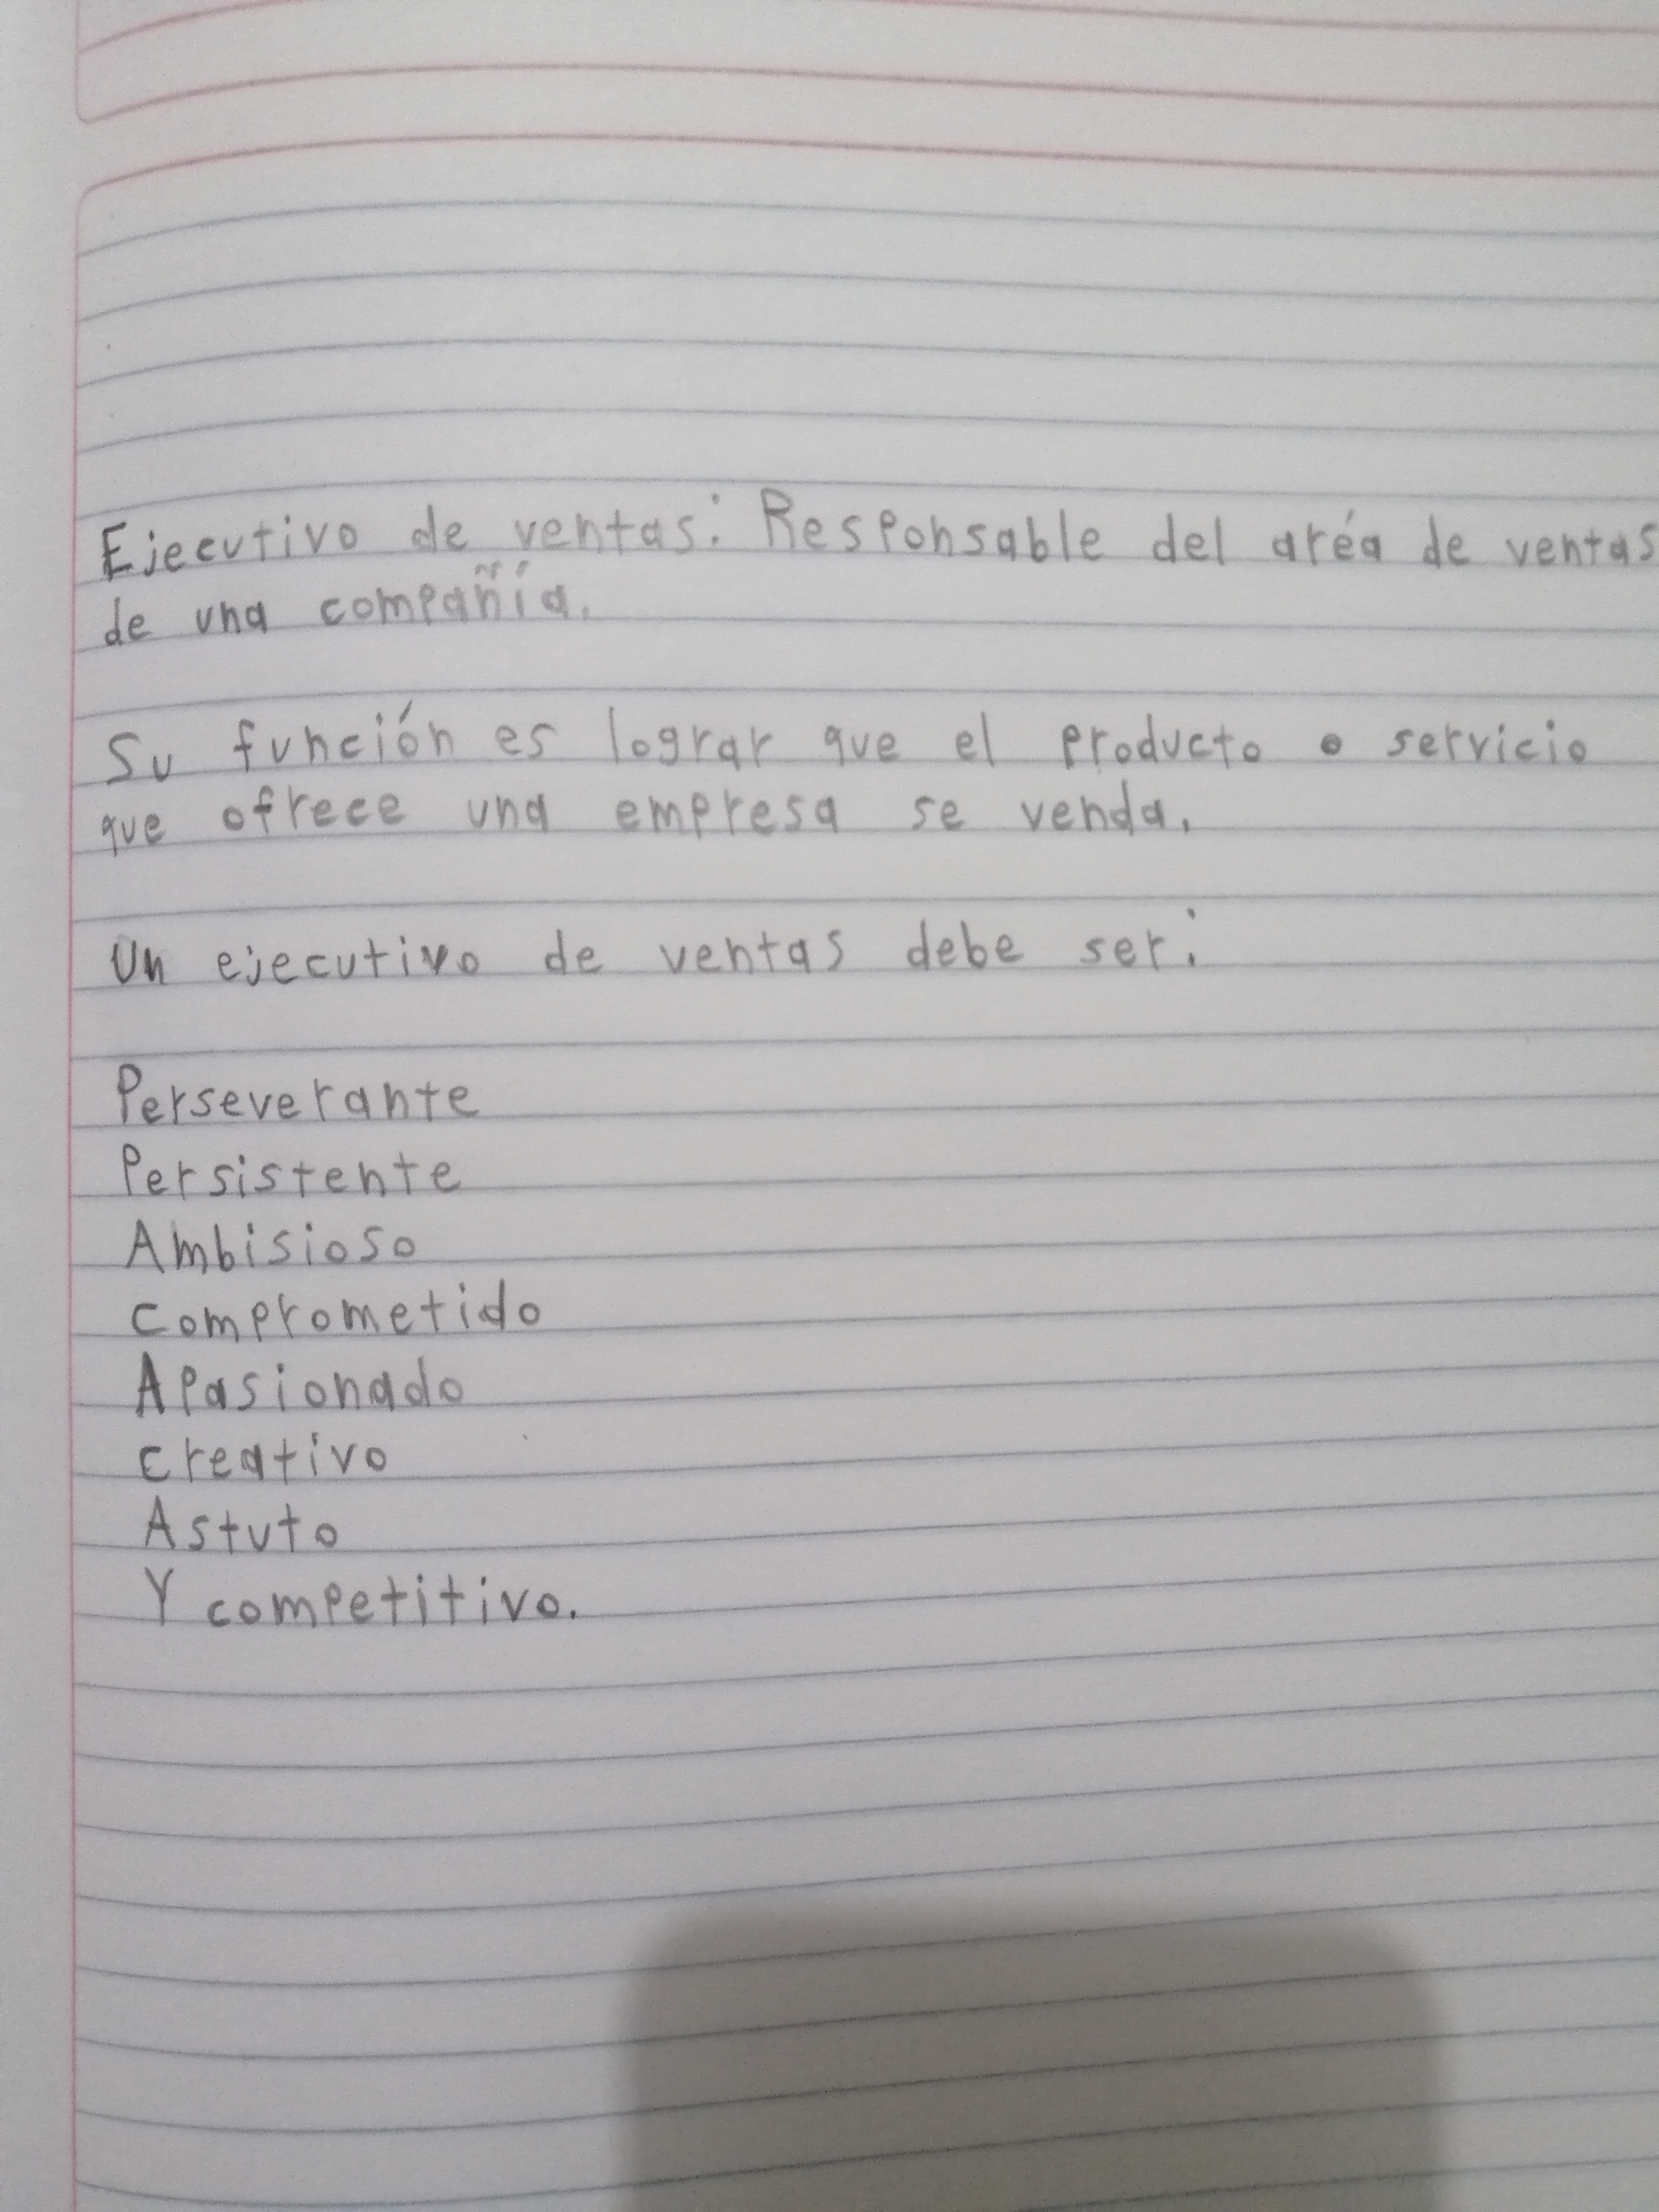 Ejecutivo de ventas: Responsable del aréa de ventas
de una compañía.
Su función es lograr que el producto o servicio
que ofrece una empresa se venda.
Un ejecutivo de ventas debe ser:
Perseverante
Persistente
Ambisioso
comprometido
Apasionado
creativo
Astuto
Y competitivo.